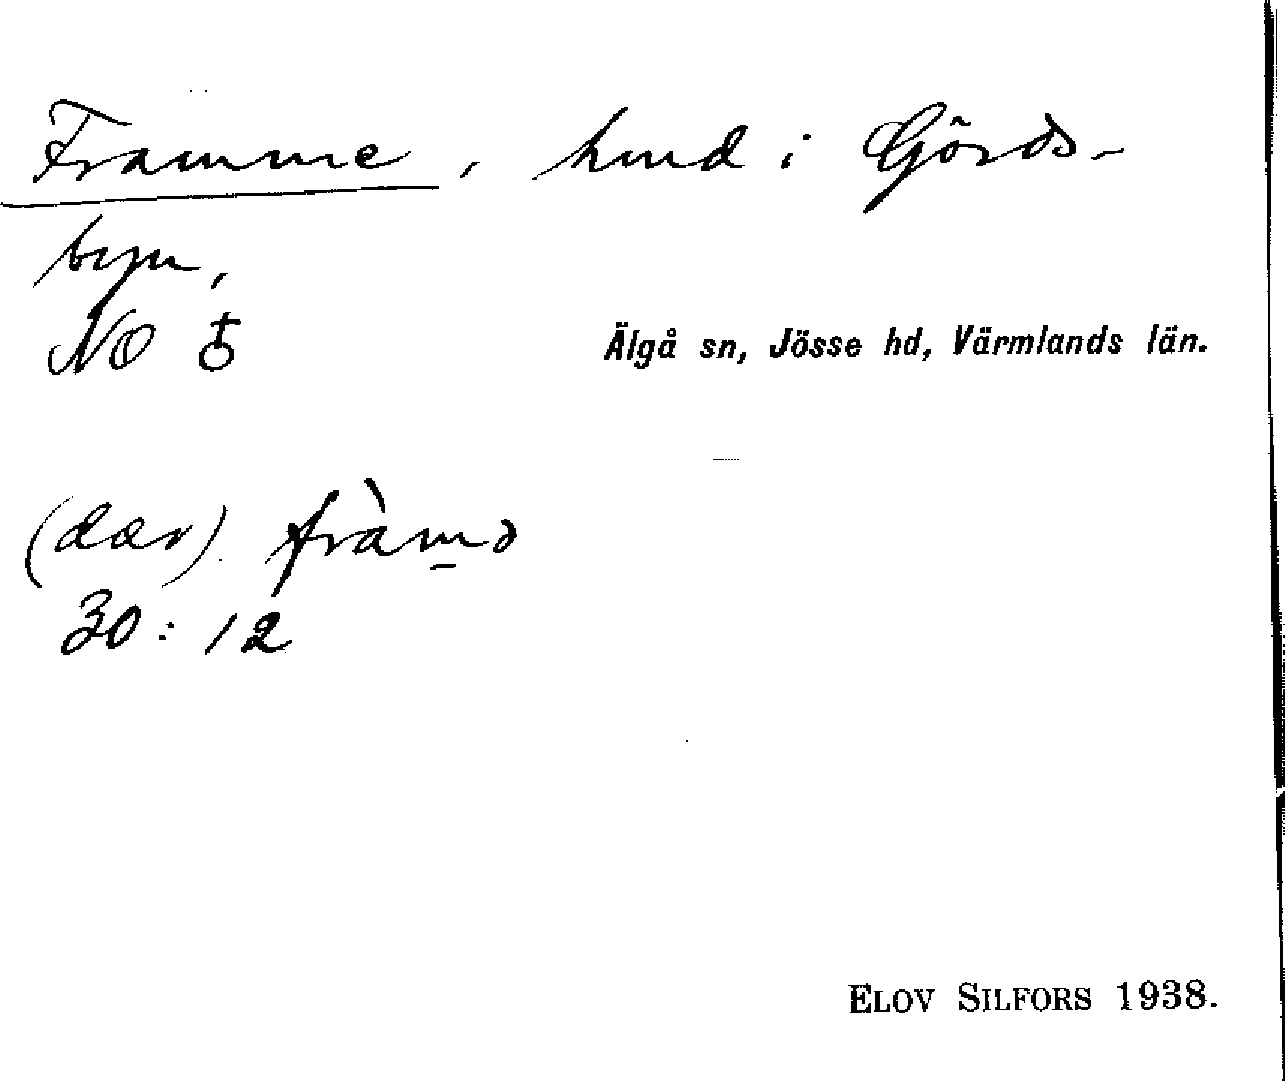 Framme, hmd i Gjörds-
byn,
NO ♁
Älgå sn, Jösse hd, Värmlands län.
(dær). fràmə
30:12
ELOV SILFORS 1938.